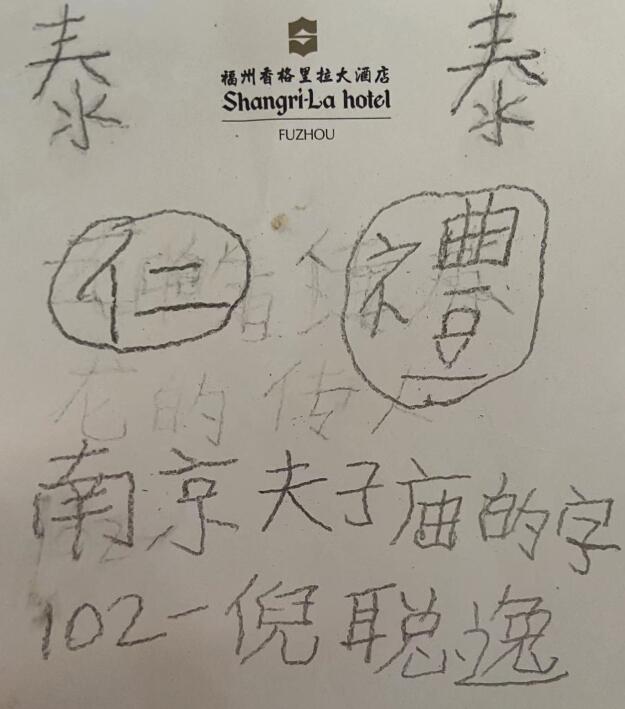 泰 泰
福州香格里拉大酒店
Shangri-La hotel
FUZHOU
仁 禮
花的传人
南京夫子庙的字
102-倪聪逸